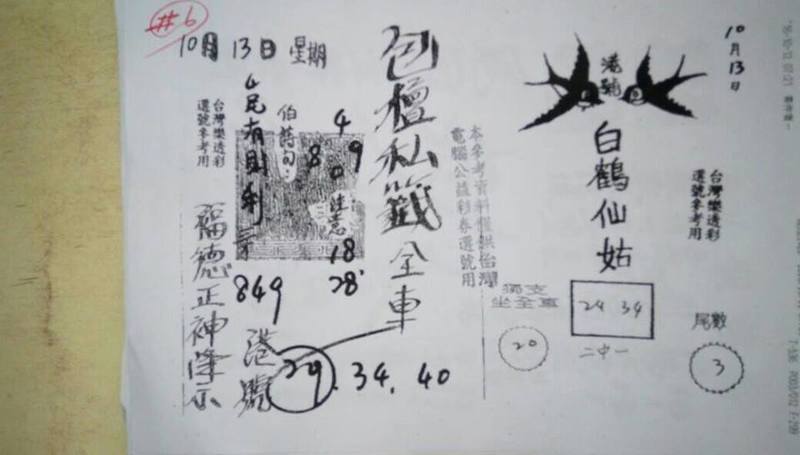 #6
10月13日
10月13日 星期
包壇私籤全車
4民有財利
伯前句:
4
8 9
0
注意:
18
28
849
台灣樂透彩
選號參考用
福德正神降示
港號
29. 34. 40
本參考資料提供台灣
電腦公益彩券選號用
港號
白鶴仙姑
台灣樂透彩
選號參考用
獨支
坐全車
20
24 34
二中一
尾數
3